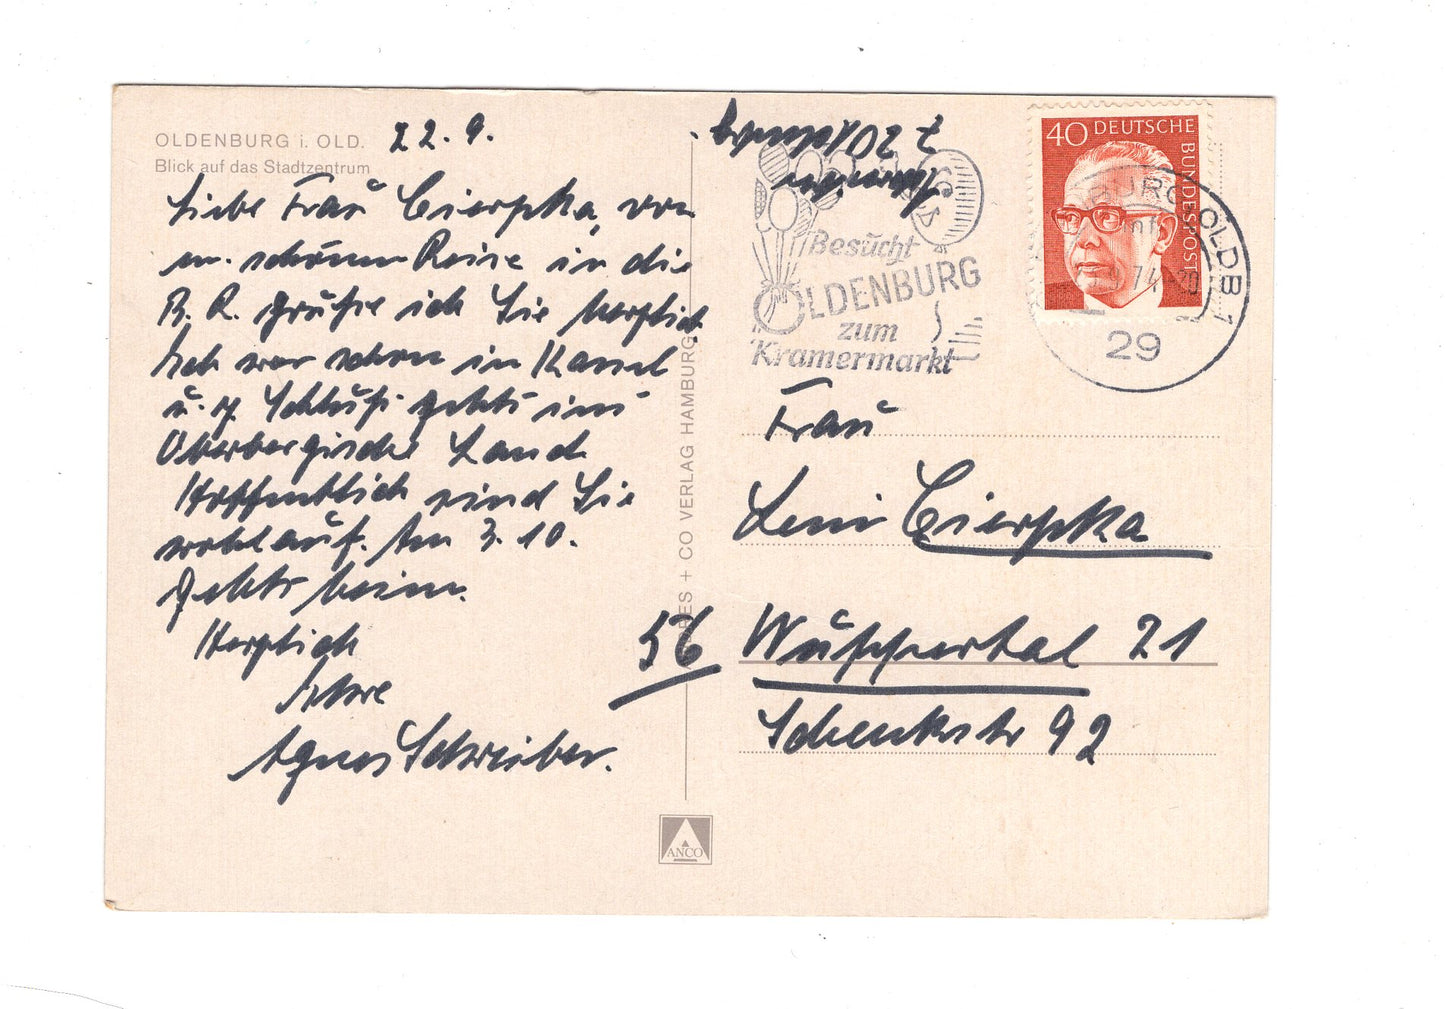 OLDENBURG i. OLD.
Blick auf das Stadtzentrum
22.9.
Liebe Frau Cierpka, von
m. schönen Reise in die
B. R. grüße ich Sie herzlich.
Ich war schon in Kassel
u. z. Schluß gehts ins
Oberbergische Land
Hoffentlich sind Sie
wohlauf. Am 3.10.
gehts heim.
Herzlich
Ihre
Agnes Schreiber.
ANCO
+ CO VERLAG HAMBURG
z Z Oldenburg
Besucht
OLDENBURG
zum
Kramermarkt
40 DEUTSCHE
BUNDESPOST
OLDB 1
74-20
29
Frau
Leni Cierpka
56 Wuppertal 21
Schenkstr 92